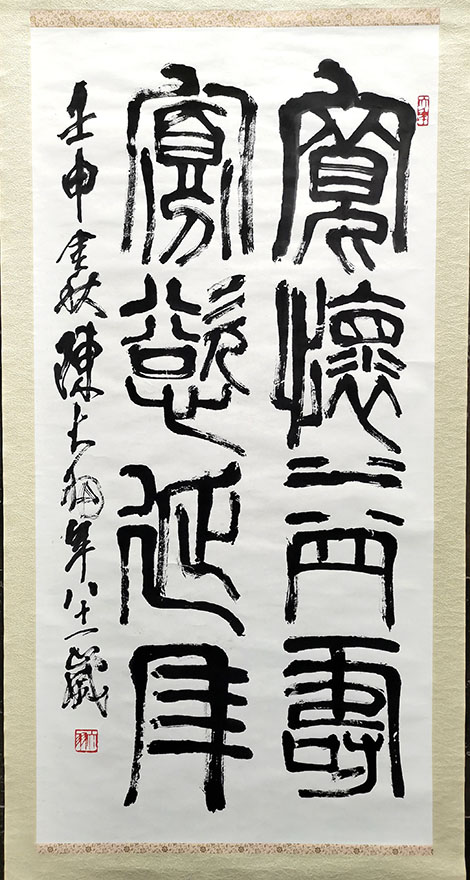 寬懷益壽
寡慾延年
壬申金秋陳大羽年八十一歲
大羽